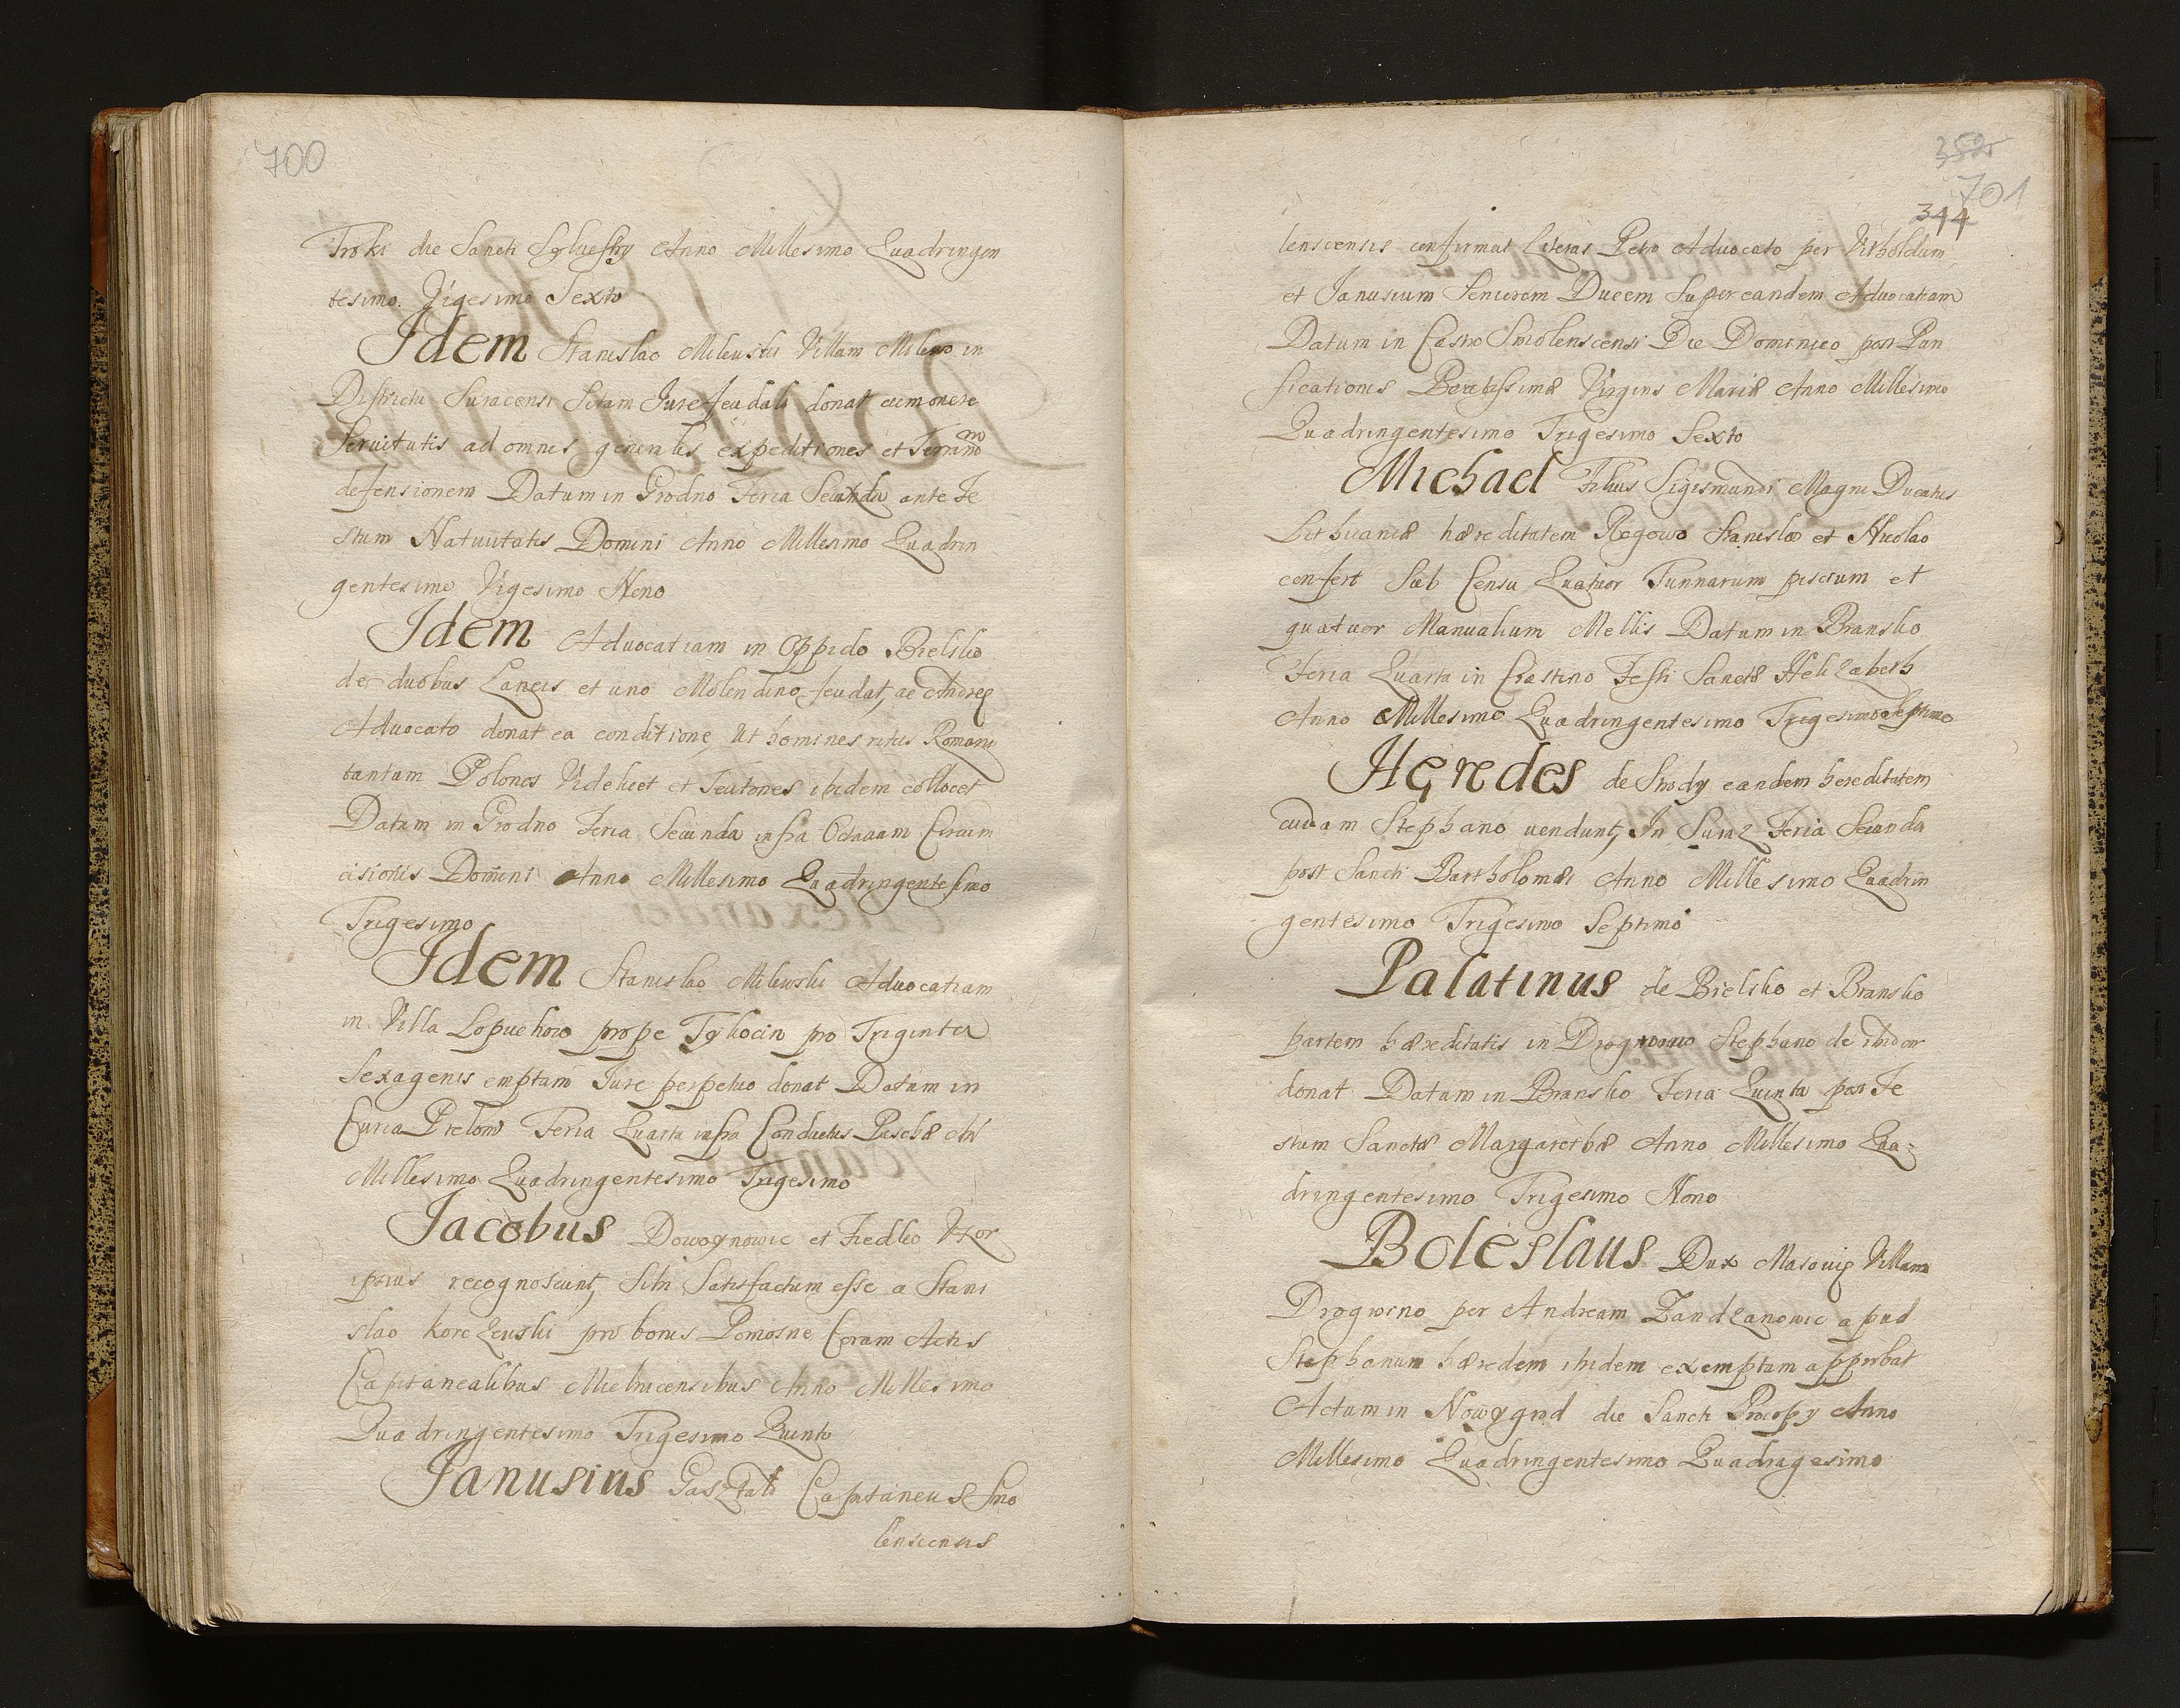 700
Troki die Sancti Sylvestry Anno Millesimo Quadringen
tesimo Vigesimo Sexto
Idem Stanislao Milewski Villam Milewo in
Districtu Suracensi Sitam Jure feudali donat cum onere
Servitutis ad omnes generales expeditiones et Terrarum
defensionem Datum in Grodno Feria Secunda ante Fe
stum Nativitatis Domini Anno Millesimo Quadrin
gentesimo Vigesimo Nono
Idem Advocatiam in Oppido Bielsko
de duobus Laneis et uno Molendino feudat, ac Andreę
Advocato donat ea conditione, Ut homines ritus Romani
tantum Polonos Videlicet et Teutones ibidem collocet
Datum in Grodno Feria Secunda infra Octavam Circum
cisionis Domini Anno Millesimo Quadringentesimo
Trigesimo
Idem Stanislao Milewski Advocatiam
in Villa Lopuchowo prope Tykocin pro Triginta
Sexagenis emptam Jure perpetuo donat Datum in
Curia Prelom Feria Quarta infra Conductus Paschæ
Millesimo Quadringentesimo Trigesimo
Jacobus Dowoynowic et Fiedko Uxor
ipsius recognoscunt, Sibi Satisfactum esse a Stani
slao Korczewski pro bonis Pomosne Coram Actis
Capitanealibus Mielnicensibus Anno Millesimo
Quadringentesimo Trigesimo Quinto
Janusius Gasztold Capitaneus Smo
lenscensis
352
701
344
lenscensis confirmat Literas Petro Advocato per Vitholdum
et Janusium Seniorem Ducem Super eandem Advocatiam
Datum in Castro Smolenscensi Die Dominico post Puri
ficationis Beatissimæ Virginis Mariæ Anno Millesimo
Quadringentesimo Trigesimo Sexto
Michael Filius Sigismundi Magni Ducatus
Lithuaniæ hæreditatem Rogowo Stanislao et Nicolao
confert Sub Censu Quatuor Tunnarum piscium et
quatuor Manualium Mellis Datum in Bransko
Feria Quarta in Crastino Festi Sanctæ Helizabeth
Anno Millesimo Quadringentesimo Trigesimo Septimo
Hęredes de Srody eandem hereditatem
cuidam Stephano vendunt, In Suraz Feria Secunda
post Sancti Bartholomæi Anno Millesimo Quadrin
gentesimo Trigesimo Septimo
Palatinus de Bielsko et Bransko
partem hæreditatis in Drogwino Stephano de ibidem
donat Datum in Bransko Feria Quinta post Fe
stum Sanctæ Margarethæ Anno Millesimo Qua-
dringentesimo Trigesimo Nono
Boleslaus Dux Masovię Villam
Drogwino per Andream Zandzanowic apud
Stephanum hæredem ibidem exemptam approbat
Actum in Nowygrod die Sancti Procopy Anno
Millesimo Quadringentesimo Quadragesimo